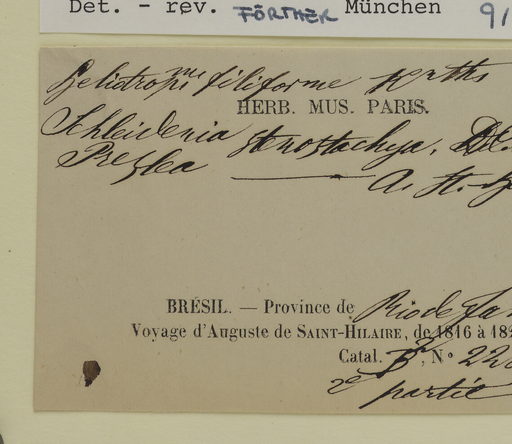 Det. - rev. FÖRTHER München 91
Heliotropium filiforme Knths
HERB. MUS. PARIS.
Schleidenia stenostachya, DC.
Preslea
A. St. H
BRÉSIL. — Province de Rio de Jan
Voyage d'Auguste de SAINT-HILAIRE, de 1816 à 182
Catal. B², N° 22
2e partie